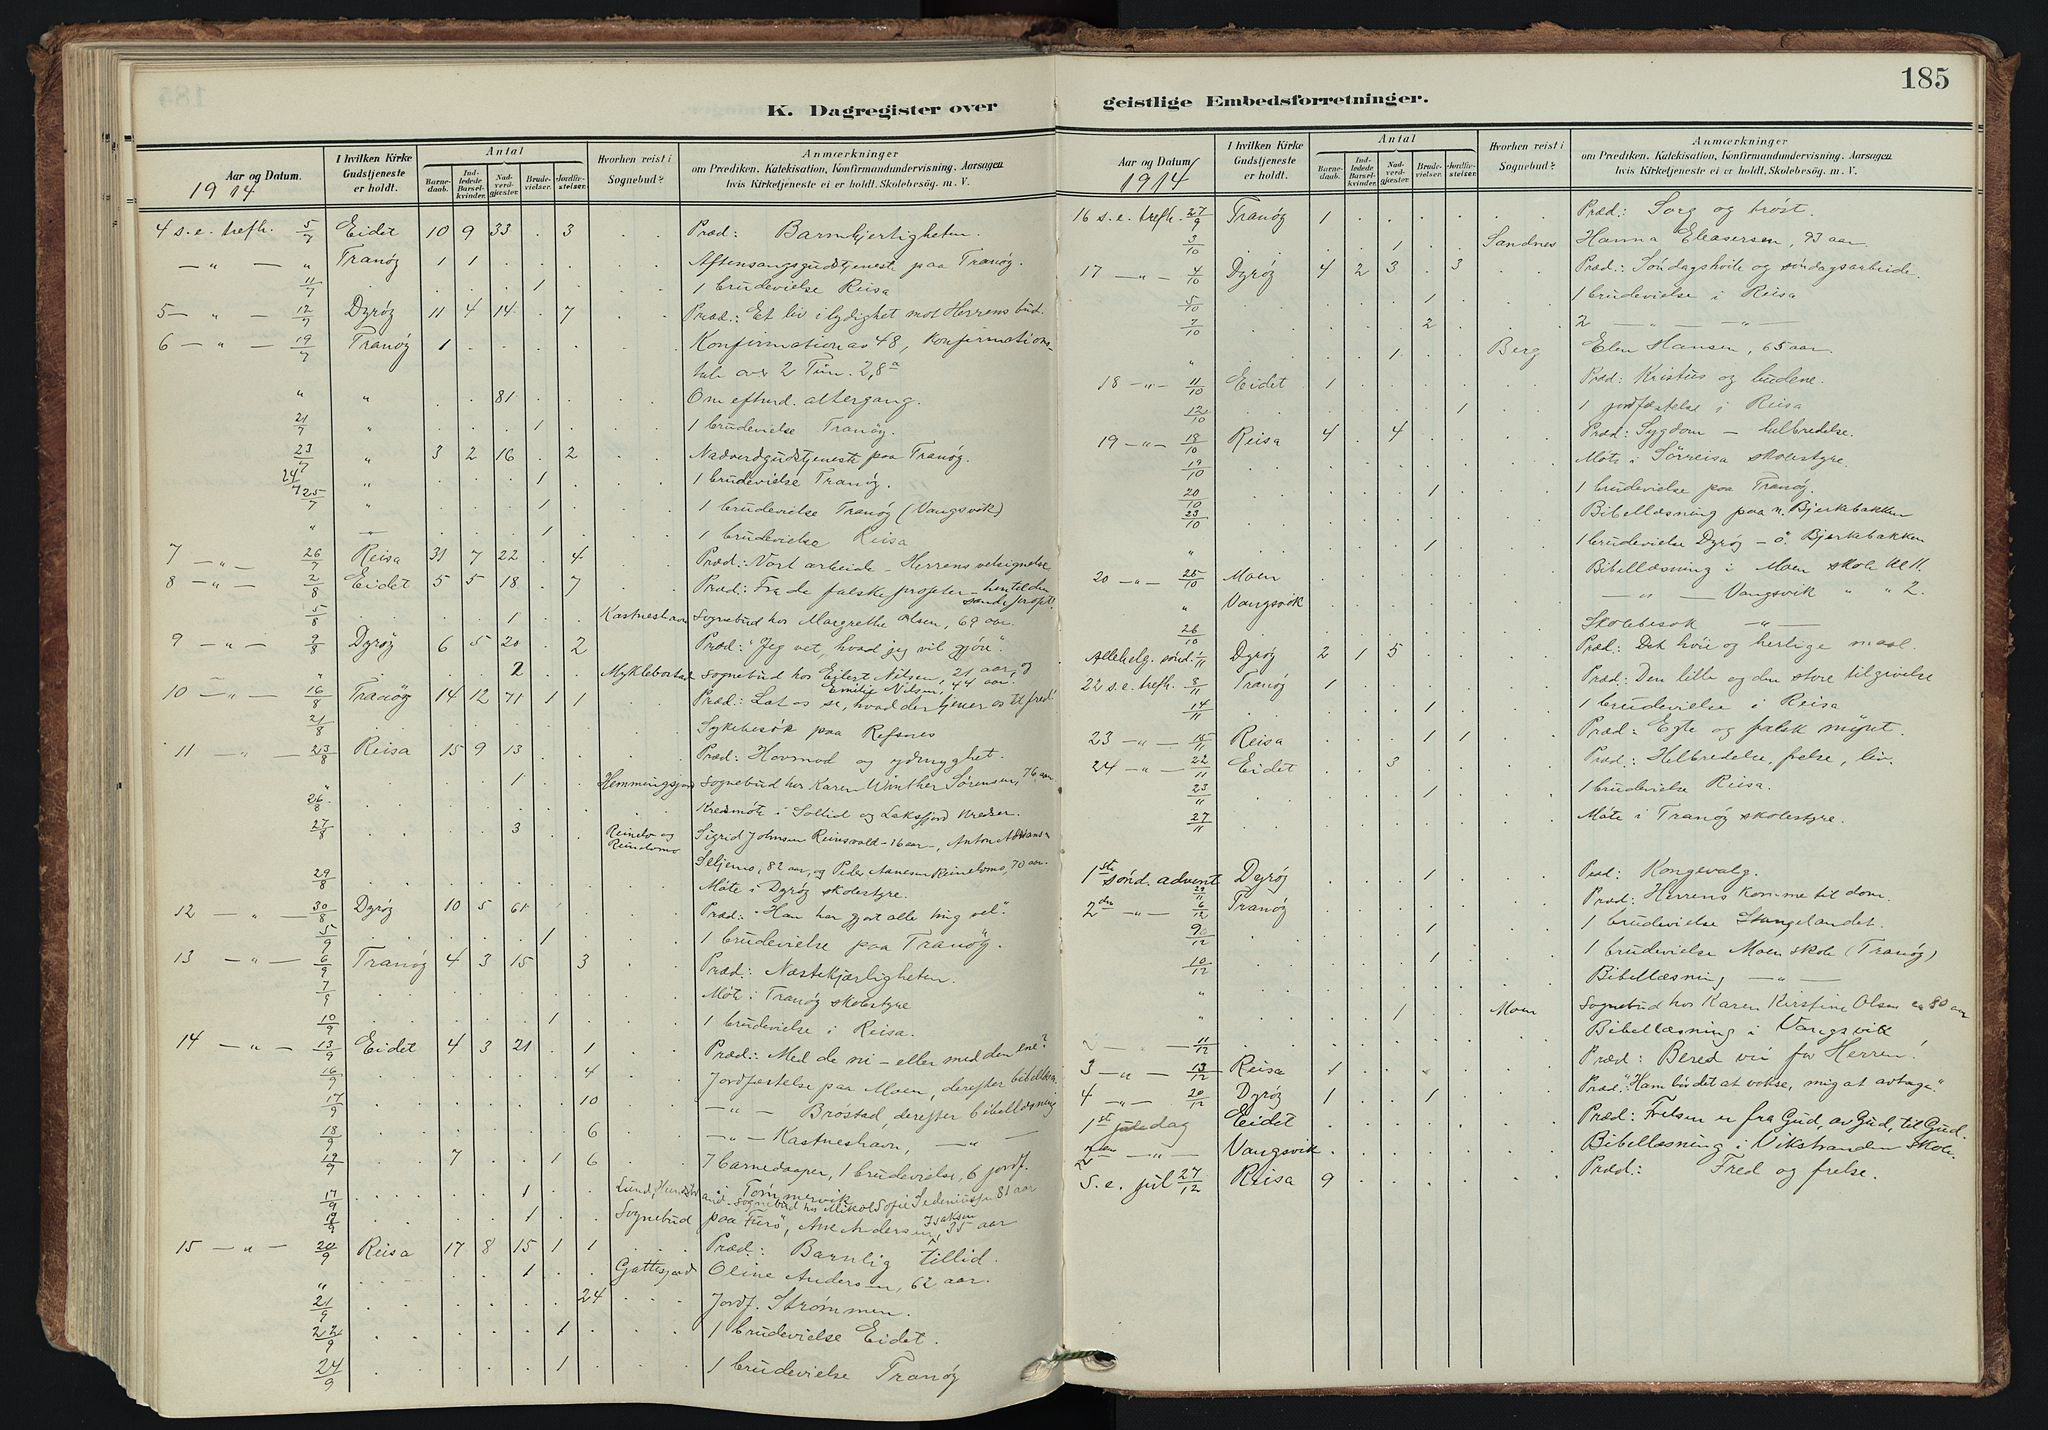 K. Dagregister over
Aar og Datum.
1914
I hvilken Kirke Gudstjeneste er holdt.
Antal
Barnedaab.
Indledede Barselkvinder.
Nadverdgjester.
Brudevielser.
Jordfæstelser.
Hvorhen reist i Sognebud?
Anmærkninger
om Prædiken. Katekisation, Konfirmandundervisning. Aarsagen
hvis Kirketjeneste ei er holdt. Skolebesøg. m. V.
4 s.e. trefh. 5/7 Eidet 10 9 33 . 3 . . Præd: Barmhjertigheten.
— " — " Tranøy 1 1 . . . . . Aftensangsgudstjeneste paa Tranøy.
11/7 . . . 1 . . . 1 brudevielse Reisa
5 — " — 12/7 Dyrøy 11 4 14 . 7 . . Præd.: Et liv i lydighet mot Herrens bud.
6 — " — 19/7 Tranøy 1 . . . . . . Konfirmation av 48, Konfirmations-
tale over 2 Tim. 2,8a
" " . . 81 . . . . Om efterd. altergang.
21/7 " . . . 1 . . . 1 brudevielse Tranøy.
23/7 " 3 2 16 . 2 . . Nadverdgudstjeneste paa Tranøy.
24/7 " . . . 1 . . . 1 brudevielse Tranøy.
25/7 " . . . 1 . . . 1 brudevielse Tranøy (Vangsvik)
" — . . . 1 . . . 1 brudevielse Reisa
7 — " — 26/7 Reisa 31 7 22 . 4 . . Præd: Vort arbeide – Herrens velsignelse
8 — " — 2/8 Eidet 5 5 18 . 7 . . Præd: Fra de falske profeter – hen til den
sande profet!
5/8 . . . 1 . . Kastneshavn Sognebud hos Margrethe Olsen, 69 aar.
9 — " — 9/8 Dyrøy 6 5 20 . 2 . . Præd: "Jeg vet, hvad jeg vil gjøre".
" . . 2 . . Myklebostad Sognebud hos Eilert Nilsen, 21 aar, og
Emilie Nilsen, 44 aar.
10 — " — 16/8 Tranøy 14 12 71 1 1 . . Præd: Lat os se, hvad der tjener os til fred!
21/8 . . . . . . . Sykebesøk paa Refsnes
11 — " — 23/8 Reisa 15 9 13 . . . . Præd: Hovmod og ydmyghet.
" . . . 1 . . Hemmingsjord Sognebud hos Karen Winther Sørensen, 76 aar.
26/8 . . . . . . . Kredsmøte i Sollid og Laksfjord kredser.
27/8 . . . 3 . . Reinelv og Reindomo Sigrid Johnsen Reinsvold – 16 aar –, Anton Adriansen
Seljemo, 82 aar, og Peder Aanesen Reinelvmo, 70 aar.
29/8 . . . . . . . Møte i Dyrøy skolestyre.
12 — " — 30/8 Dyrøy 10 5 61 . . . . Præd: "Han har gjort alle ting vel".
5/9 . . . 1 . . . 1 brudevielse paa Tranøy.
13 — " — 6/9 Tranøy 4 3 15 . 3 . . Præd: Næstekjærligheten.
7/9 . . . . . . . Møte i Tranøy skolestyre
10/9 . . . 1 . . . 1 brudevielse i Reisa.
14 — " — 13/9 Eidet 4 3 21 . 1 . . Præd: Med de ni – eller med den ene?
16/9 . . . . 4 . . Jordfæstelse paa Moen, derefter bibellæsn.
17/9 . . . . 10 . . — " — Brøstad, derefter bibellæsning
18/9 . . . . 6 . . — " — Kastneshavn, — " —
19/9 . 7 . . 1 6 . . 7 barnedaaper, 1 brudevielse, 6 jordf.
i Tømmervik
17/9 . . . 1 . . Lund, Hundstrand. Sognebud hos Mikal Sofie Sedeniusen 81 aar
19/9 . . . 1 . . Sognebud paa Furø, Ane Andersen Isaksen, 35 aar
15 — " — 20/9 Reisa 17 8 15 1 1 . . Præd: Barnlig tillid.
" . . . 1 . . Gottesjord Oline Andersen, 62 aar.
21/9 . . . . 24 . . Jordf. Strømmen.
22/9 . . . 1 . . . 1 brudevielse Eidet.
24/9 . . . 1 . . . 1 brudevielse Tranøy
185
geistlige Embedsforretninger.
Aar og Datum
1914
I hvilken Kirke Gudstjeneste er holdt.
Antal
Barnedaab.
Indledede Barselkvinder.
Nadverdgjester.
Brudevielser.
Jordfæstelser.
Hvorhen reist i Sognebud?
Anmærkninger
om Prædiken. Katekisation, Konfirmandundervisning. Aarsagen
hvis Kirketjeneste ei er holdt. Skolebesøg. m. V.
16 s.e. trefh. 27/9 Tranøy 1 . . . . . . Præd.: Sorg og trøst.
3/10 . . . 1 . . Sandnes Hanna Eleasersen, 93 aar.
17 — " — 4/10 Dyrøy 4 2 3 . 3 . . Præd.: Søndagshvile og søndagsarbeide.
5/10 . . . 1 . . . 1 brudevielse i Reisa
7/10 . . . 2 . . . 2 — " — " —
" . . 1 . . Berg Elen Hansen, 65 aar.
18 — " — 11/10 Eidet 1 . . . . . . Præd: Kristus og budene.
12/10 . . . . 1 . . 1 jordfæstelse i Reisa
19 — " — 18/10 Reisa 4 . 4 . . . . Præd: Sygdom – helbredelse.
19/10 . . . . . . . Møte i Sørreisa skolestyre.
20/10 . . . 1 . . . 1 brudevielse paa Tranøy.
23/10 . . . . . . . Bibellæsning paa n. Bjerkebakken
" . . . 1 . . . 1 brudevielse Dyrøy – ö. Bjerkebakken
20 — " — 25/10 Moen . . . . . . . Bibellæsning i Moen skole kl 11.
" Vangsvik . . . . . . . — " — Vangsvik " " 2.
26/10 . . . . . . . Skolebesøk — " —
Allehelg. sønd. 1/11 Dyrøy 2 1 5 . . . . Præd: Det høie og herlige maal.
22 s.e. trefh. 8/11 Tranøy 1 . . . . . . Præd: Den lille og den store tilgivelse
14/11 . . . 1 . . . 1 brudevielse i Reisa
23 — " — 15/11 Reisa . . . 1 1 . . Præd: Egte og falsk mynt.
24 — " — 22/11 Eidet . . 3 . . . . Præd: Helbredelse, frelse, liv.
23/11 . . . 1 . . . 1 brudevielse Reisa.
27/11 . . . . . . . Møte i Tranøy skolestyre.
1ste sønd. advent 29/11 Dyrøy . . . 1 . . . Præd: Kongevalg.
2den — " — 6/12 Tranøy . . . . . . . Præd: Herrens komme til dom.
9/12 . . . 1 . . . 1 brudevielse Stangelandet.
10/12 . . . 1 . . . 1 brudevielse Moen skole (Tranøy)
" . . . . . . . Bibellæsning — " —
" . . 1 . . Moen Sognebud hos Karen Kirstine Olsen ca 80 aar
11/12 . . . . . . . Bibellæsning i Vangsvik
3 — " — 13/12 Reisa 1 . . . . . . Præd: Bered vei for Herren!
4 — " — 20/12 Dyrøy 1 . . 1 . . . Præd: "Ham bør det at vokse, mig at avtage."
1ste juledag Eidet . . . . . . . Præd: Frelsen er fra Gud, av Gud, til Gud.
2den — " — Vangsvik . . . . . . . Bibellæsning i Vikstranden skole.
S.e. jul 27/12 Reisa 9 . . . . . . Præd: Fred og frelse.